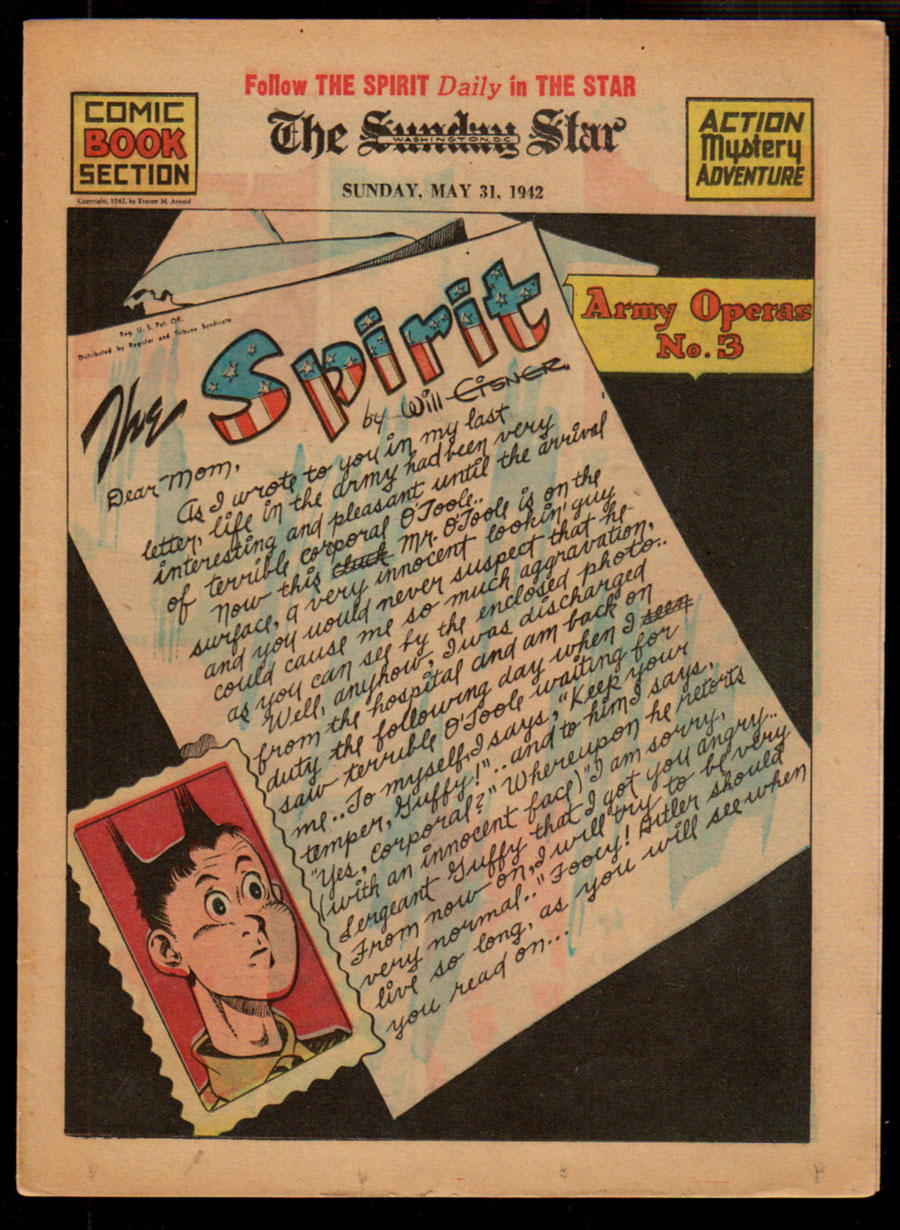 Follow THE SPIRIT Daily in THE STAR
COMIC
BOOK
SECTION
Copyright, 1942, by Everett M. Arnold
The Sunday Star
WASHINGTON, D.C.
SUNDAY, MAY 31, 1942
ACTION
Mystery
ADVENTURE
Reg. U. S. Pat. Off.
Distributed by Register and Tribune Syndicate
The Spirit
by Will Eisner
Army Operas
No. 3
Dear Mom,
As I wrote to you in my last
letter, life in the army had been very
interesting and pleasant until the arrival
of terrible corporal O'Toole..
Now this cluck Mr. O'Toole is on the
surface, a very innocent lookin' guy
and you would never suspect that he
could cause me so much aggravation,
as you can see by the enclosed photo..
Well, anyhow, I was discharged
from the hospital and am back on
duty the following day when I seen
saw terrible O'Toole waiting for
me.. To myself I says, "Keep your
temper, Guffy!".. and to him I says,
"Yes, corporal?" Whereupon he retorts
(with an innocent face) "I am sorry,
Sergeant Guffy that I got you angry..
From now on, I will try to be very
very normal.." Fooey! Hitler should
live so long, as you will see when
you read on...